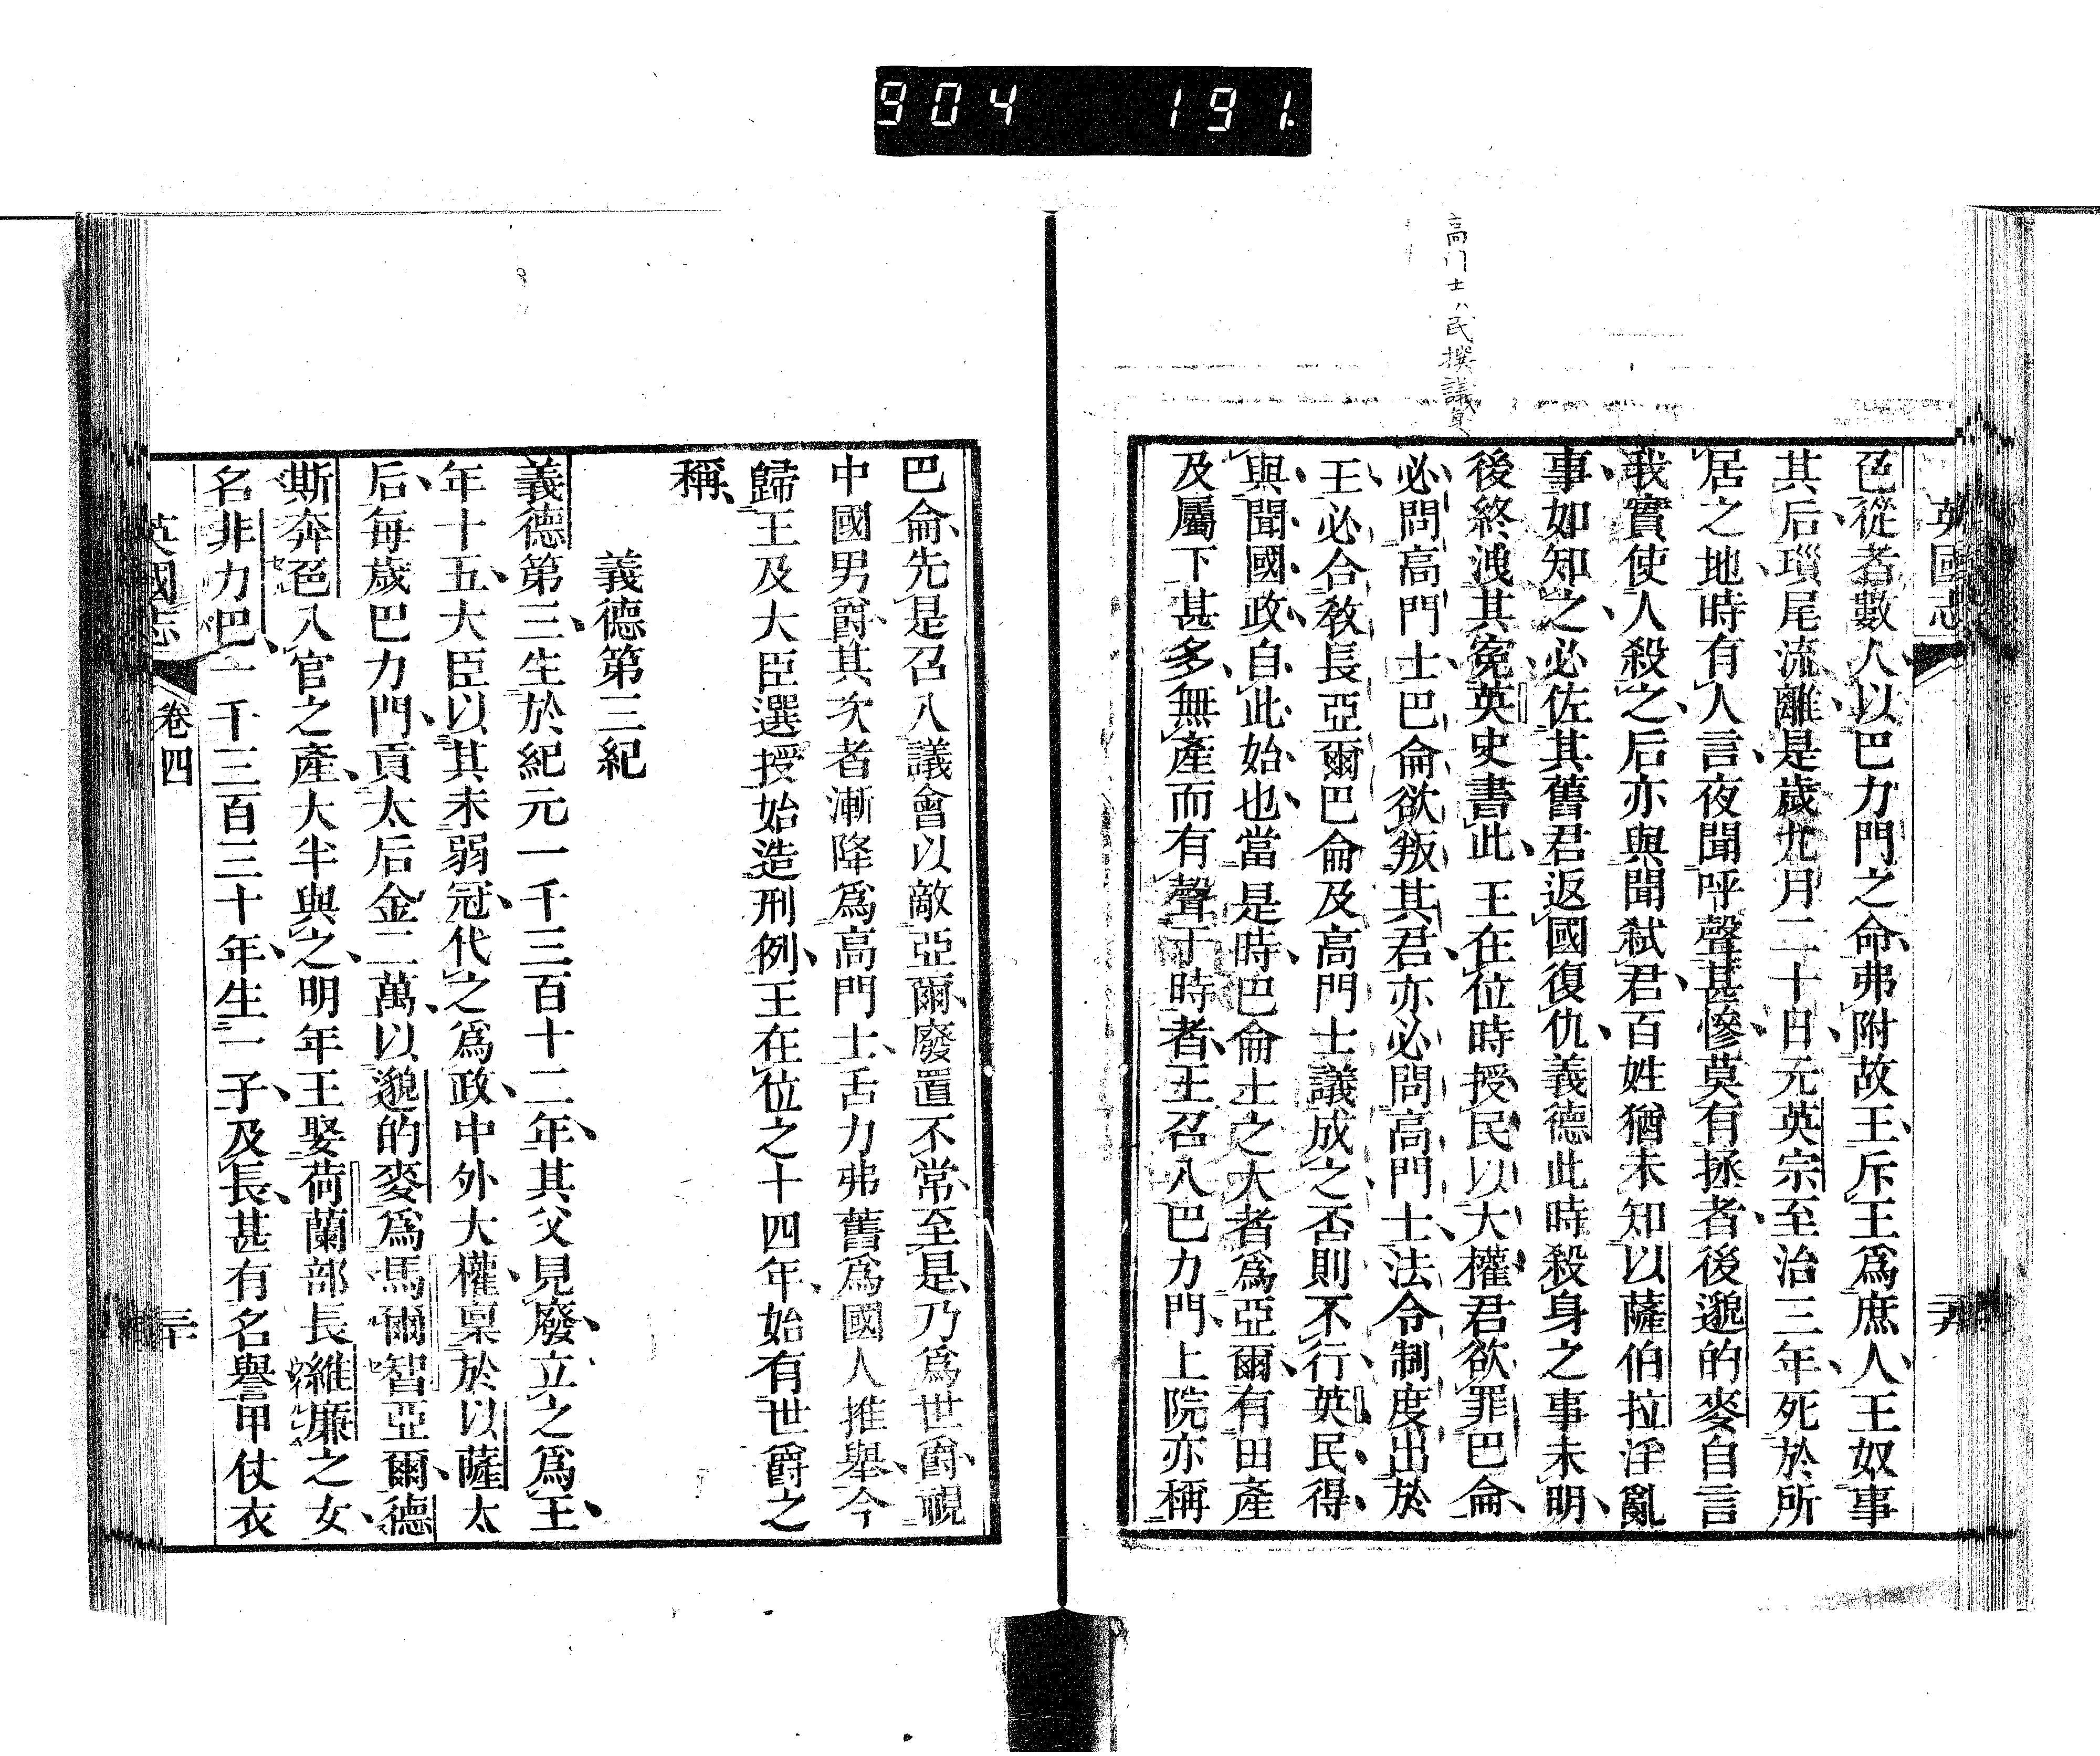 904 191.
高門士ハ民撰議員
英國志
色從者數人以巴力門之命弗附故王斥王爲庶人王奴事
其后瑣尾流離是歲九月二十日元英宗至治三年死於所
居之地時有人言夜聞呼聲甚慘莫有拯者後邈的麥自言
我實使人殺之后亦與聞弑君百姓猶未知以薩伯拉淫亂
事如知之必佐其舊君返國復仇義德此時殺身之事未明
後終洩其寃英史書此 王在位時授民以大權君欲罪巴侖
必問高門士巴侖欲叛其君亦必問高門士法令制度出於
王必合敎長亞爾巴侖及高門士議成之否則不行英民得
與聞國政自此始也當是時巴侖士之大者爲亞爾有田產
及屬下甚多無產而有聲于時者王召入巴力門上院亦稱
巴侖先是召入議會以敵亞爾廢置不常至是乃爲世爵視
中國男爵其次者漸降爲高門士舌力弗舊爲國人推舉今
歸王及大臣選授始造刑例王在位之十四年始有世爵之
稱
義德第三紀
義德第三生於紀元一千三百十二年其父見廢立之爲王
年十五大臣以其未弱冠代之爲政中外大權稟於以薩太
后每歲巴力門貢太后金二萬以邈的麥爲馬爾智亞爾德
斯奔色入官之產大半與之明年王娶荷蘭部長維廉之女
名非力巴一千三百三十年生一子及長甚有名譽甲仗衣
英國志
卷四
三十